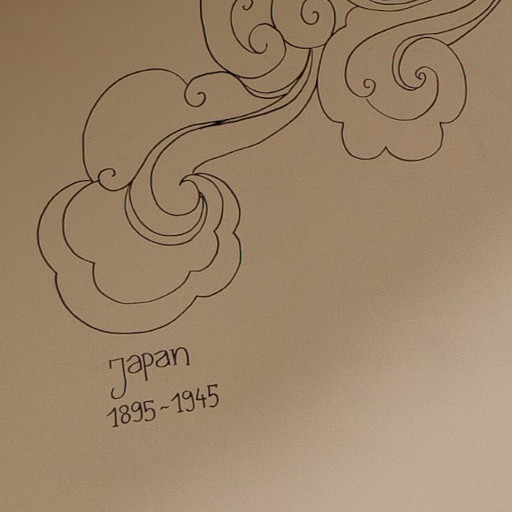 Japan
1895~1945